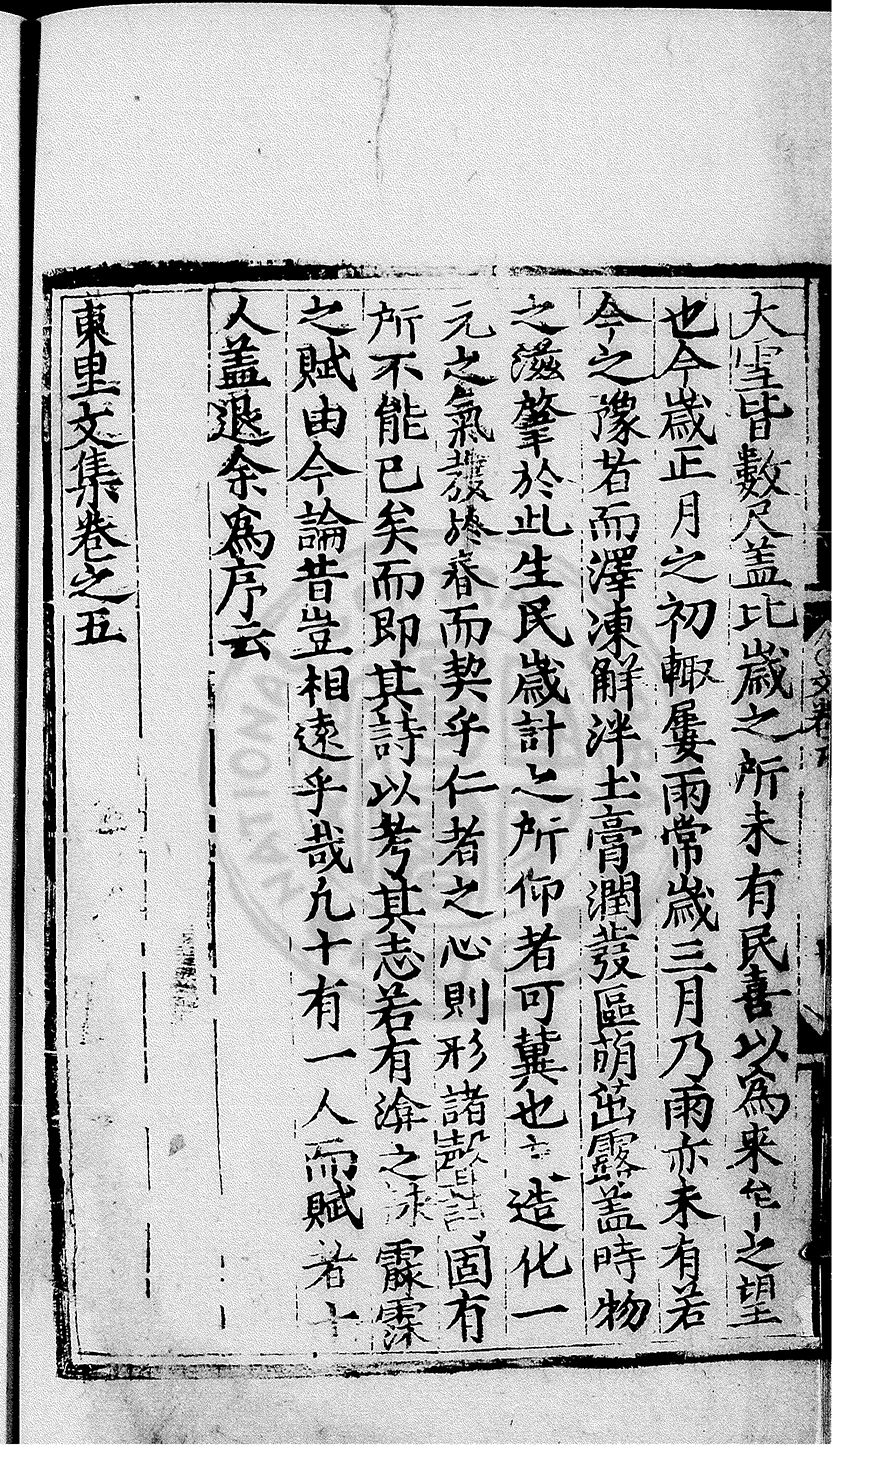 大雪皆數尺盖比歲之所未有民喜以為来牟之望
也今歲正月之初輙屢雨常歲三月乃雨亦未有若
今之豫者而澤凍觧泮土膏潤發區萌茁露盖時物
之滋肇於此生民歲計之所仰者可冀也造化一
元之氣發扵春而契乎仁者之心則形諸聲詩固有
所不能已矣而即其詩以考其志若有渰之詠霢霂
之賦由今論昔豈相遠乎哉凢十有一人而賦者十
人盖退余為序云
東里文集卷之五
文卷五
NATIONA